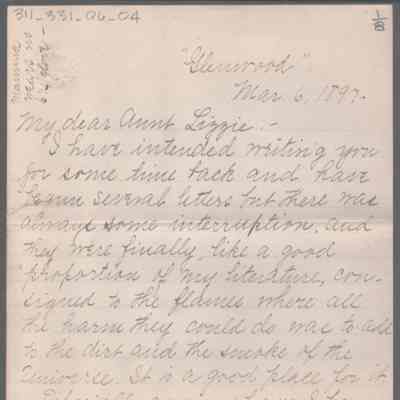 311-331-96-04
1/8
"Glenwood"
Mar. 6, 1897.
My dear Aunt Lizzie:-
I have intended writing you
for some time back and have
begun several letters but there was
always some interruption, and
they were finally, like a good
proportion of my literature, con-
signed to the flames where all
the harm they could do was to add
to the dirt and the smoke of the
Universe. It is a good place for it.